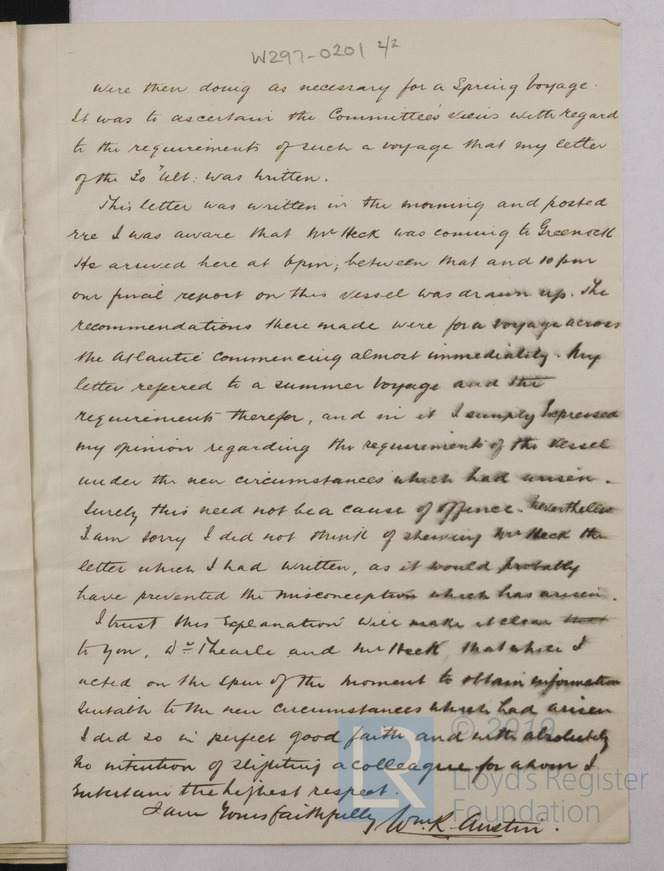 W297-0201 2/2
were then doing as necessary for a Spring Voyage.
It was to ascertain the Committee's views with regard
to the requirements of such a voyage that my letter
of the 30th Ult: was written.
This letter was written in the morning and posted
ere I was aware that Mr Heck was coming to Greenock
He arrived here at 6pm; between that and 10 pm
our final report on this vessel was drawn up. The
recommendations there made were for a voyage across
the Atlantic commencing almost immediately. My
letter referred to a summer Voyage and the
requirements therefor, and in it I simply Expressed
my opinion regarding the requirements of the vessel
under the new circumstances which had arisen.
Surely this need not be a cause of offence. Nevertheless
I am sorry I did not think of shewing Mr Heck the
letter which I had written, as it would probably
have prevented the misconception which has arisen.
I trust this Explanation will make it clear that
to You, Dr Thearle and Mr Heck that while I
acted on the spur of the moment to obtain information
suitable to the new circumstances which had arisen
I did so in perfect good faith and with absolutely
no intention of slighting a colleague for whom I
Entertain the highest respect.
I am Yours faithfully
Wm. R. Austin.
© 2019
LR
Lloyd's Register
Foundation